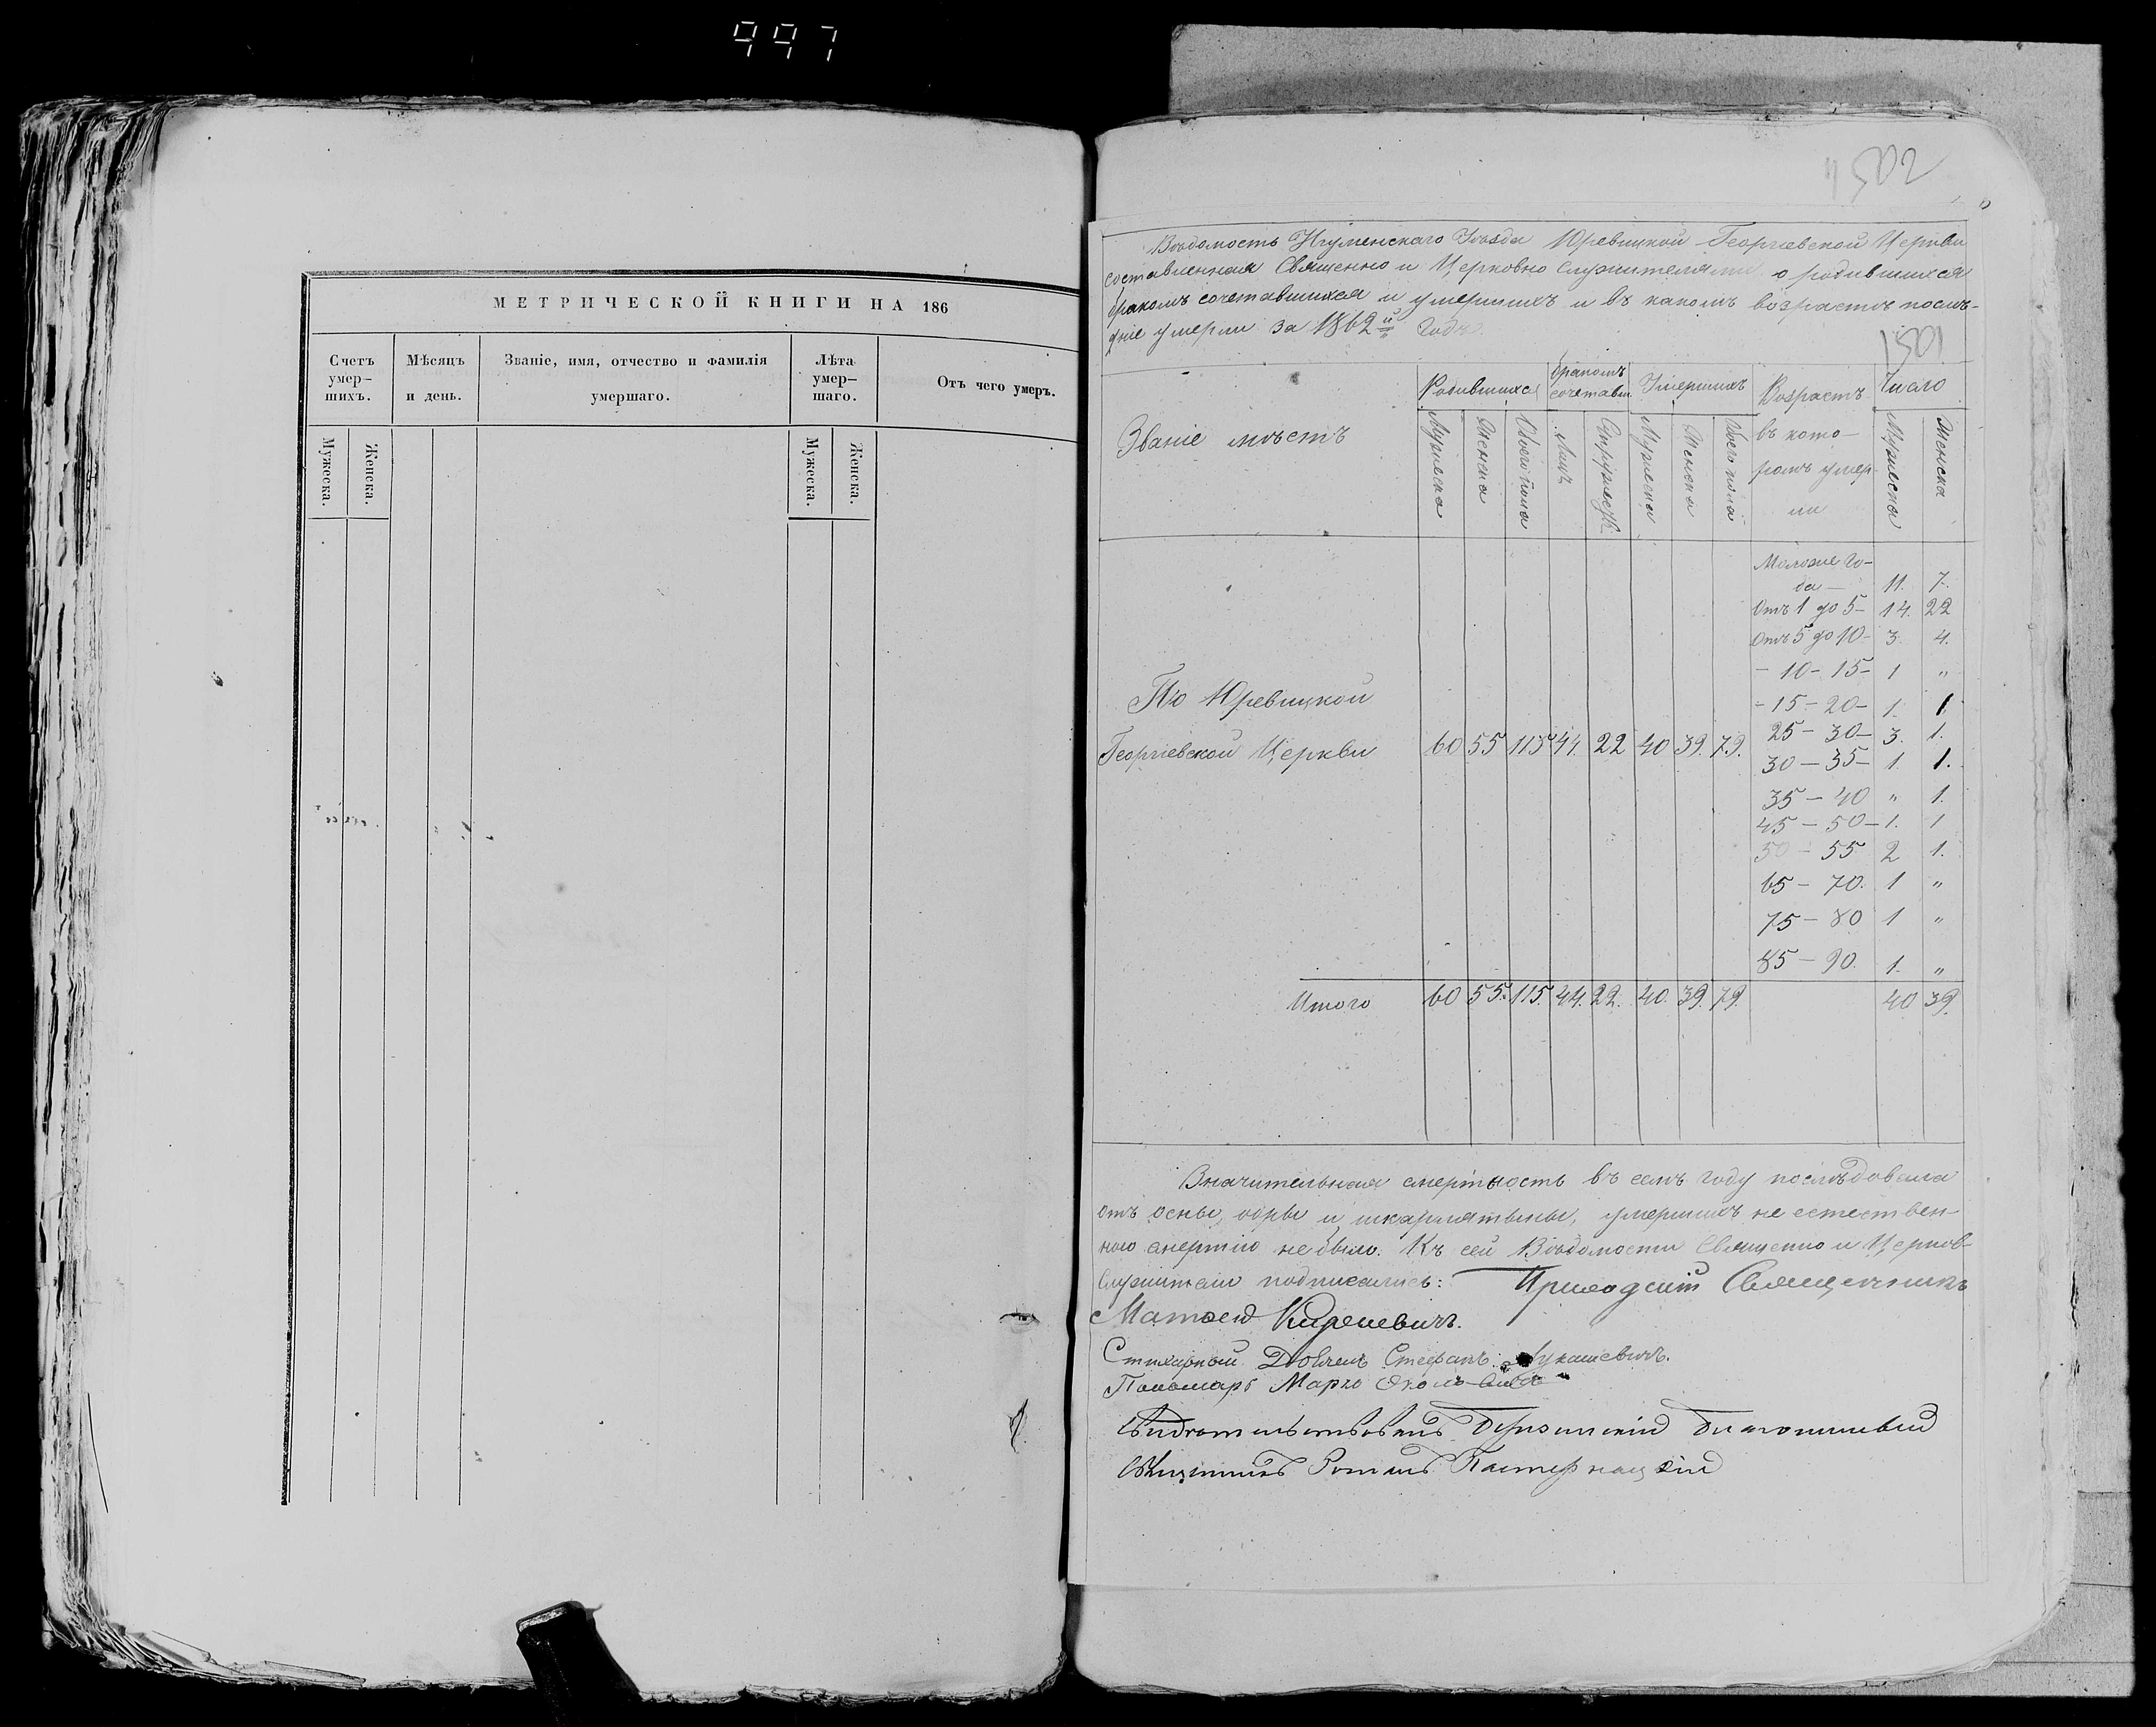 997
МЕТРИЧЕСКОЙ КНИГИ НА 186
Счетъ умер- шихъ.
Мѣсяцъ и день.
Званіе, имя, отчество и фамилія умершаго.
Лѣта умер- шаго.
Отъ чего умеръ.
Мужеска. Женска.
Мужеска. Женска.
502
Вѣдомость Игуменскаго Уѣзда Юревицкой Георгіевской Церкви
составленная Священно и Церковно служителями о родившихся
бракомъ сочетавшихся и умершихъ и въ какомъ возрастѣ послѣ-
дніе умерли за 1862й Годъ.
1501
Званіе мѣстъ
Родившихся
бракомъ сочетавш
Умершихъ
Возрастъ въ кото- ромъ умер ли
Число
Мужеска Женска Обоего пола Лицъ Супружеств. Мужеска Женска Обоего пола Мужеска Женска
Моложе го-
да — 11. 7.
Отъ 1 до 5 — 14. 22
Отъ 5 до 10 — 3. 4.
- 10 - 15 - 1 "
- 15 - 20 - 1. 1
25 - 30 - 3. 1.
30 — 35 - 1. 1.
35 — 40 " 1.
45 — 50 — 1. 1
50 — 55 2 1.
65 — 70. 1 "
75 — 80 1 "
85 — 90. 1. "
По Юревицкой
Георгіевской Церкви 60 55 115 44. 22 40 39. 79.
Итого 60 55. 115. 44. 22. 40. 39. 79. 40 39.
Значительная смертность въ семъ году послѣдовала
отъ оспы, кори и шкарлятыны, умершихъ не естествен-
ною смертію не было. Къ сей Вѣдомости Священно и Церков-
служители подписались: Приходскій Священникъ
Матѳей Киркевичъ.
Стихарный Дьячекъ Стефанъ Лукашевичъ.
Пономарь Марко
Свидѣтельствовалъ Березинскій Благочинный
Священникъ Романъ Пастернацкій